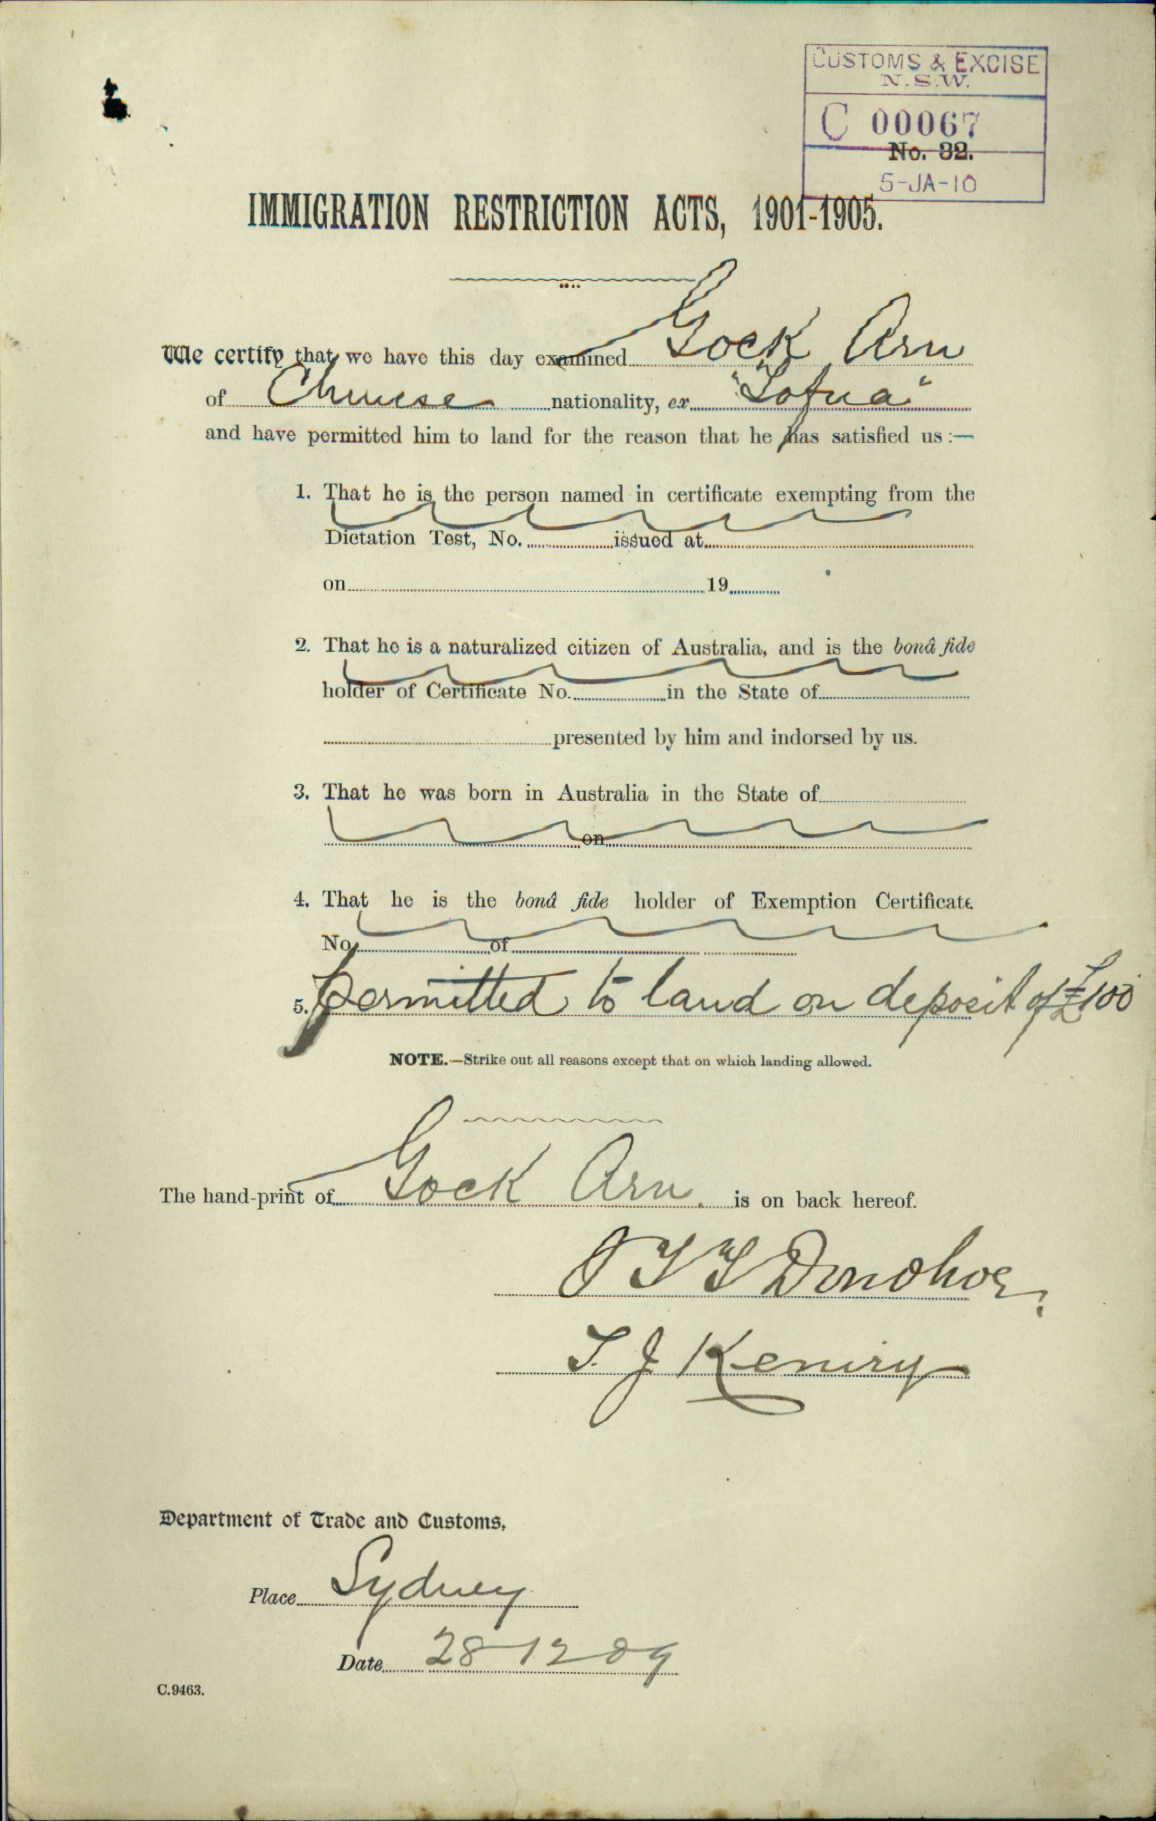 CUSTOMS & EXCISE
N.S.W.
C 00067
No. 32.
5-JA-10
IMMIGRATION RESTRICTION ACTS, 1901-1905.
We certify that we have this day examined Gock Arn
of Chinese nationality, ex "Tofua"
and have permitted him to land for the reason that he has satisfied us :—
1. That he is the person named in certificate exempting from the
Dictation Test, No. issued at
on 19
2. That he is a naturalized citizen of Australia, and is the bonâ fide
holder of Certificate No. in the State of
presented by him and indorsed by us.
3. That he was born in Australia in the State of
on
4. That he is the bonâ fide holder of Exemption Certificate
No. of
5. permitted to land on deposit of £100
NOTE.—Strike out all reasons except that on which landing allowed.
The hand-print of Gock Arn. is on back hereof.
Donohoe
T. J. Keniry
Department of Trade and Customs,
Place Sydney
Date 28 12 09
C.9463.